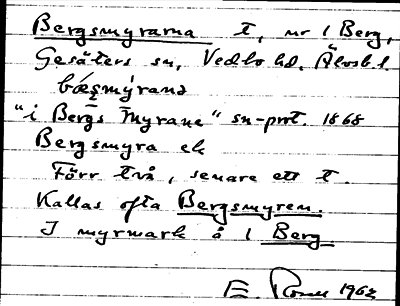 Bergsmyrarna t, nr 1 Berg,
Gesäters sn, Vedbo hd, Älvsb. l.
"i Bergs Myrane" sn-prot. 1868
Bergsmyra ek
Förr två, senare ett t.
Kallas ofta Bergsmyren.
I myrmark å 1 Berg.
E 1962